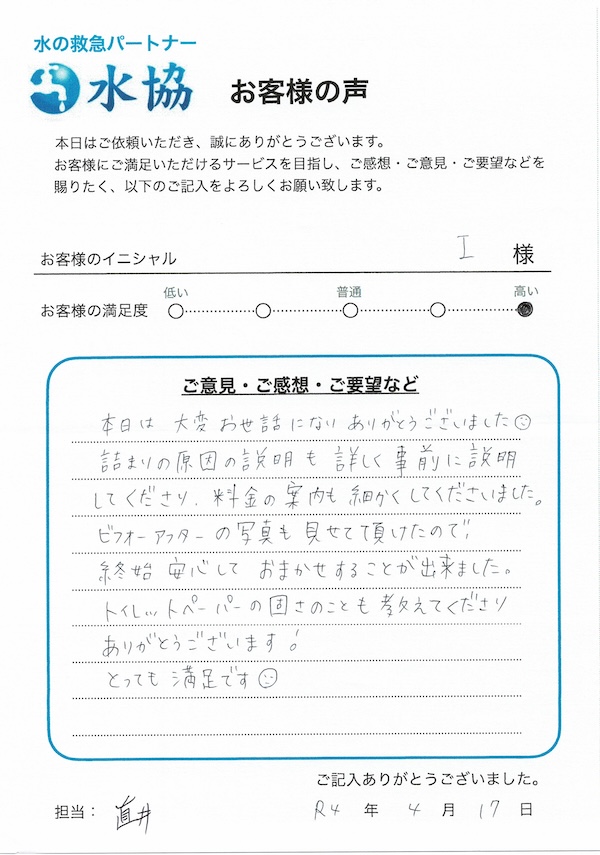 水の救急パートナー
水協 お客様の声
本日はご依頼いただき、誠にありがとうございます。
お客様にご満足いただけるサービスを目指し、ご感想・ご意見・ご要望などを
賜りたく、以下のご記入をよろしくお願い致します。
お客様のイニシャル I 様
低い 普通 高い
お客様の満足度
ご意見・ご感想・ご要望など
本日は 大変 お世話になり ありがとうございました☺
詰まりの原因の説明も 詳しく 事前に説明
してくださり、料金の案内も 細かくしてくださいました。
ビフォーアフターの写真も 見せて頂けたので、
終始 安心して おまかせすることが出来ました。
トイレットペーパーの固さのことも 教えてくださり
ありがとうございます！
とっても 満足です☺
ご記入ありがとうございました。
担当： 直井 R4 年 4 月 17 日